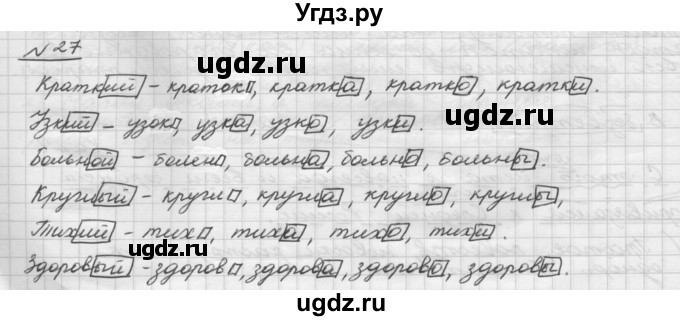 Угдз.ру
№27
ugdz.ru ugdz.ru
Краткий – краток, кратка, кратко, кратки.
Узкий – узок, узка, узко, узки.
Больной – болен, больна, больно, больны.
Круглый – кругл, кругла, кругло, круглы,
Тихий – тих, тиха, тихо, тихи.
ugdz.ru ugdz.ru
Здоровый – здоров, здорова, здорово, здоровы.
ugdz.ru